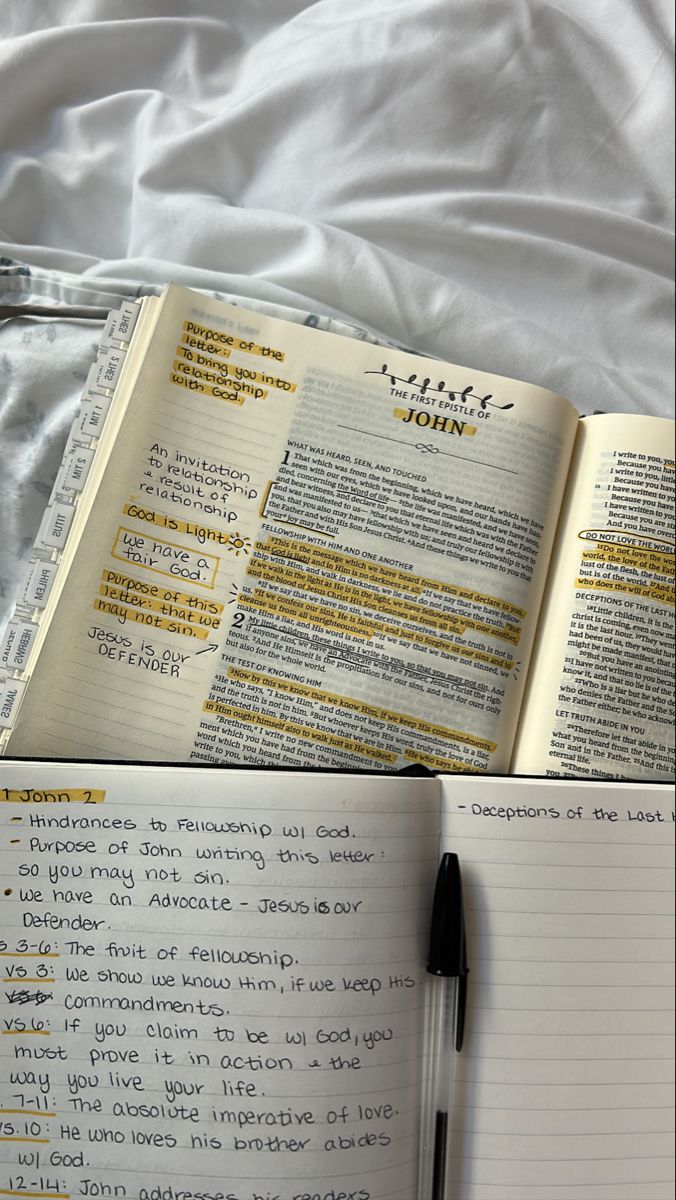 1 THES
2 THES
1 TIM
2 TIM
TITUS
PHILEM
HEBREWS
JAMES
Purpose of the
letter:
To bring you into
relationship
with God.
An invitation
to relationship
& result of
relationship
God is Light
We have a
fair God.
Purpose of this
letter: that we
may not sin.
JESUS is our
DEFENDER
THE FIRST EPISTLE OF
JOHN
WHAT WAS HEARD, SEEN, AND TOUCHED
1 That which was from the beginning, which we have heard, which we have
seen with our eyes, which we have looked upon, and our hands have han-
dled, concerning the Word of life— ²the life was manifested, and we have seen,
and bear witness, and declare to you that eternal life which was with the Father
and was manifested to us— ³that which we have seen and heard we declare to
you, that you also may have fellowship with us; and truly our fellowship is with
the Father and with His Son Jesus Christ. ⁴And these things we write to you that
your joy may be full.
FELLOWSHIP WITH HIM AND ONE ANOTHER
⁵This is the message which we have heard from Him and declare to you,
that God is light and in Him is no darkness at all. ⁶If we say that we have fellow-
ship with Him, and walk in darkness, we lie and do not practice the truth. ⁷But
if we walk in the light as He is in the light, we have fellowship with one another,
and the blood of Jesus Christ His Son cleanses us from all sin.
⁸If we say that we have no sin, we deceive ourselves, and the truth is not in
us. ⁹If we confess our sins, He is faithful and just to forgive us our sins and to
cleanse us from all unrighteousness. ¹⁰If we say that we have not sinned, we
make Him a liar, and His word is not in us.
2 My little children, these things I write to you, so that you may not sin. And
if anyone sins, we have an Advocate with the Father, Jesus Christ the righ-
teous. ²And He Himself is the propitiation for our sins, and not for ours only
but also for the whole world.
THE TEST OF KNOWING HIM
³Now by this we know that we know Him, if we keep His commandments.
⁴He who says, "I know Him," and does not keep His commandments, is a liar,
and the truth is not in him. ⁵But whoever keeps His word, truly the love of God
is perfected in him. By this we know that we are in Him. ⁶He who says he abides
in Him ought himself also to walk just as He walked.
⁷Brethren, I write no new commandment to you
ment which you have had from the beginning
word which you heard from the beginning.
write to you, which thing
passing away
I write to you, you
Because you hav
I write to you, little
Because you have
I have written to you
Because you have
I have written to you
Because you are
And you have over
DO NOT LOVE THE WORL
¹⁵Do not love the wo
world, the love of the Fa
lust of the flesh, the lust of
but is of the world. ¹⁷And
who does the will of God a
DECEPTIONS OF THE LAST H
¹⁸Little children, it is the
christ is coming, even now ma
it is the last hour. ¹⁹They went
had been of us, they would ha
might be made manifest, that n
²⁰But you have an anointin
²¹I have not written to you becau
know it, and that no lie is of the
²²Who is a liar but he who de
who denies the Father and the S
the Father either; he who acknow
LET TRUTH ABIDE IN YOU
²⁴Therefore let that abide in yo
what you heard from the beginning
Son and in the Father. ²⁵And this is
eternal life.
²⁶These things I h
1 John 2
- Hindrances to Fellowship w/ God.
- Purpose of John writing this letter:
so you may not sin.
• We have an Advocate - Jesus is our
Defender.
s 3-6: The fruit of fellowship.
vs 3: We show we know Him, if we keep His
commandments.
vs 6: If you claim to be w/ God, you
must prove it in action & the
way you live your life.
. 7-11: The absolute imperative of love.
vs. 10: He who loves his brother abides
w/ God.
12-14: John addresses his readers
- Deceptions of the Last H